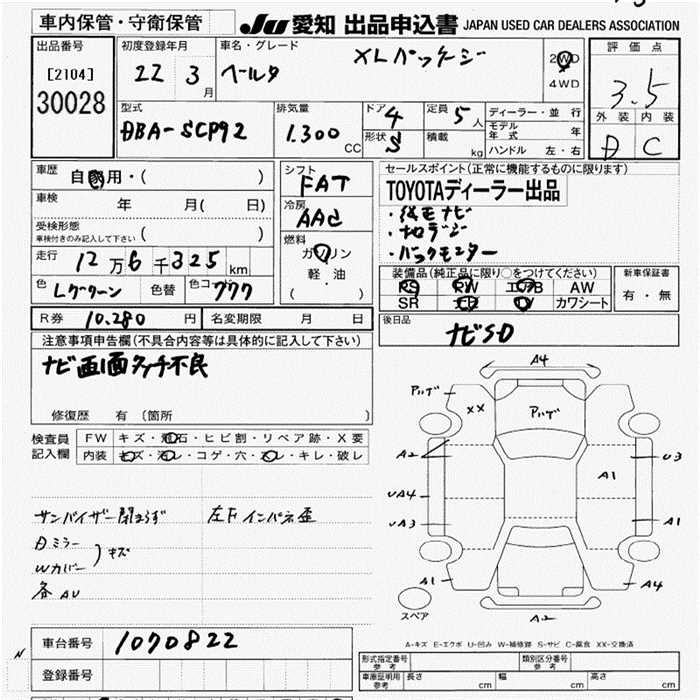 車内保管・守衛保管 JU 愛知 出品申込書 JAPAN USED CAR DEALERS ASSOCIATION
出品番号 初度登録年月 車名・グレード XLパッケージ 2WD 評価点
[2104] 22 3月 ベルタ 4WD 3.5
30028 型式 排気量 ドア 4 定員 5人 ディーラー・並行 外装 内装
DBA-SCP92 1.300 CC 形状 S 積載 kg モデル年式 年 D C
ハンドル 左・右
車歴 自家用・( ) シフト FAT セールスポイント(正常に機能するものに限ります)
車検 年 月( 日) 冷房 AAC TOYOTAディーラー出品
受検形態 ( ) ・純正ナビ
車検付きのみ記入して下さい 燃料 ・地デジ
走行 12万6千325km ガソリン ・バックモニター
色 Lグリーン 色替 色コード 777 軽・油 装備品(純正品に限り○をつけてください) 新車保証書
( ) PS PW エアB AW 有・無
SR TV カワシート
R券 10.280円 名変期限 月 日 後日品
注意事項申告欄(不具合内容等は具体的に記入して下さい) ナビSD
ナビ画面タッチ不良
修復歴 有 (箇所 )
検査員記入欄 FW キズ・飛石・ヒビ割・リペア跡・X要
内装 キズ・汚レ・コゲ・穴・スレ・キレ・破レ
サンバイザー閉まらず 左Fインパネ歪
Dミラー
Wカバー ) キズ
各AU
A4
アルゲ XX アルゲ
A2 U3
A1
UA4
UA3 A1
A1 A4
スペア A2
A-キズ E-エクボ U-凹み W-補修跡 S-サビ C-腐食 XX-交換済
車台番号 1070822
登録番号
型式指定番号 参考 類別区分番号 参考
車庫証明用 参考 長さ cm 幅 cm 高さ cm